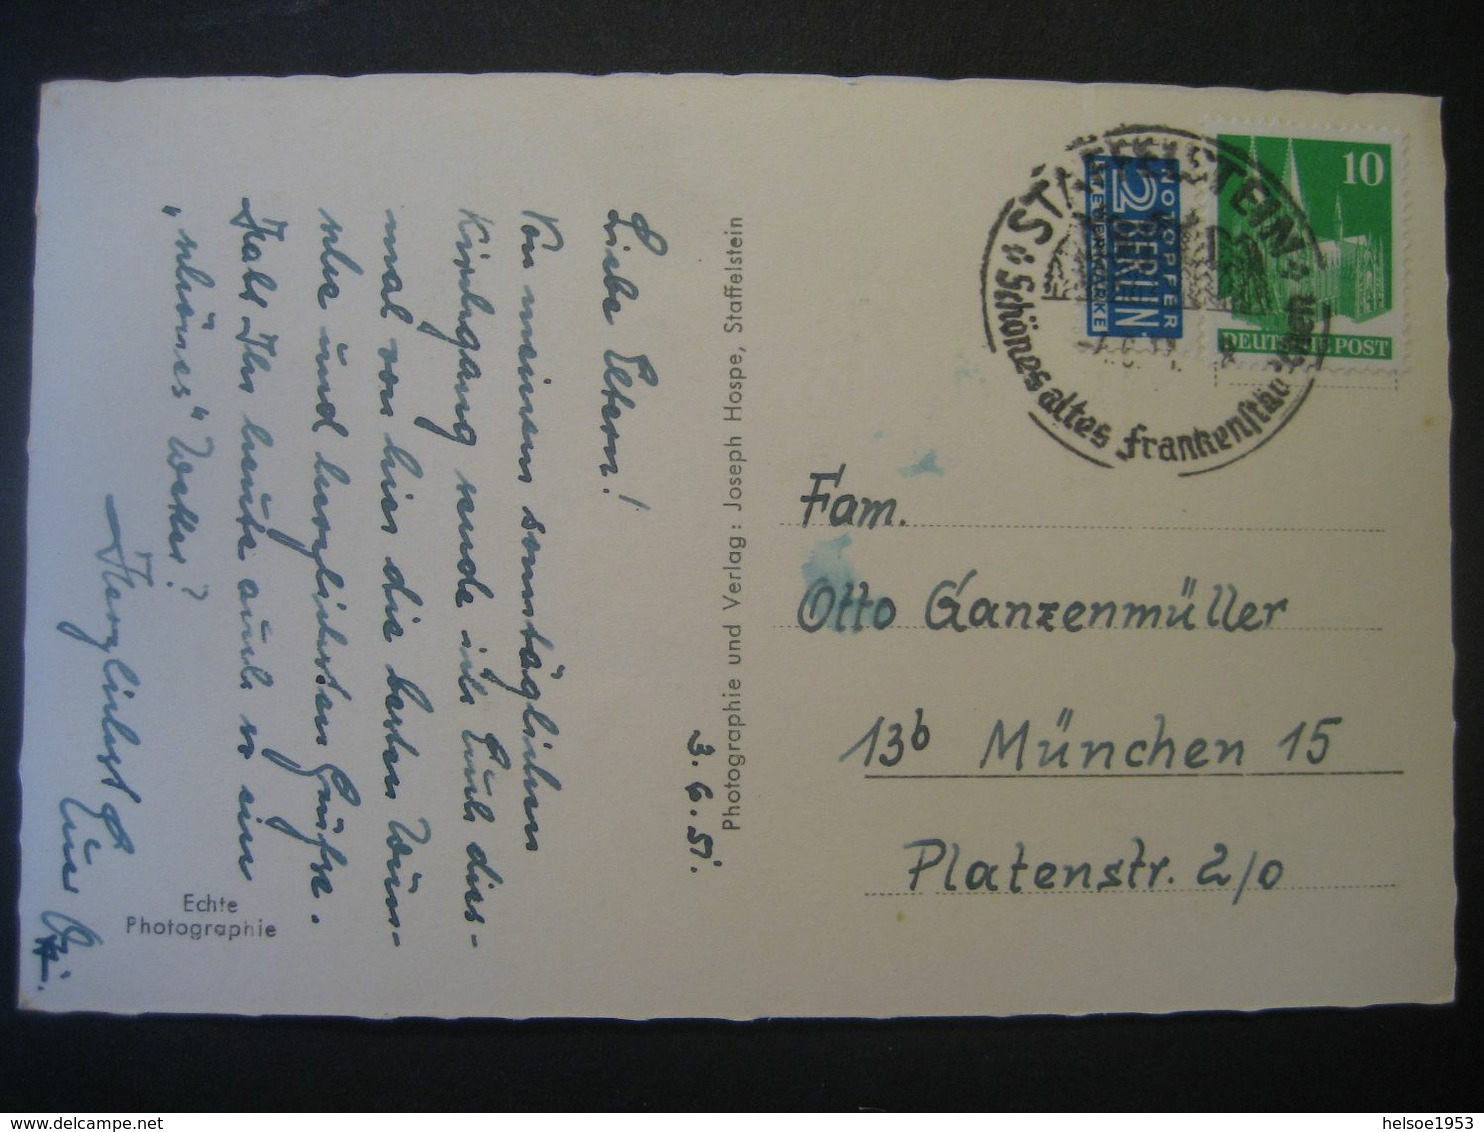 3.6.51.
Liebe Eltern!
Von meinem sonntäglichen
Kirchgang sende ich Euch dies-
mal von hier die besten Wün-
sche und herzlichsten Grüße.
Habt Ihr heute auch so ein
"schönes" Wetter?
Herzlichst
Euer
Echte
Photographie
Photographie und Verlag: Joseph Hospe, Staffelstein
NOTOPFER
2 BERLIN
STEUERMARKE
10
DEUTSCHE POST
STAFFELSTEIN
Schönes altes Frankenstädtchen
Fam.
Otto Ganzenmüller
13b München 15
Platenstr. 2/0
helsoe1953